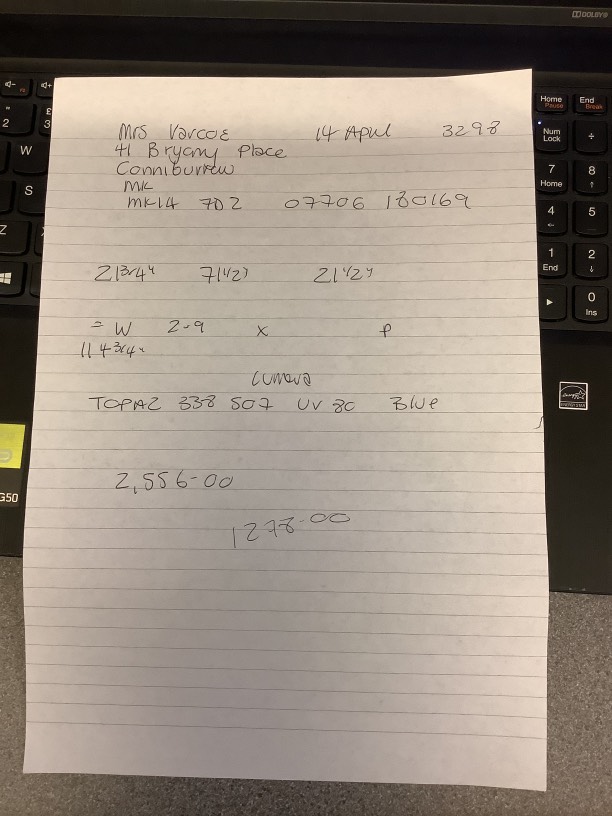 DOLBY
Mrs Varcoe 14 April 3298
41 Bryony Place
Conniburrow
MK
MK14 7DZ 07706 180169
21 3/4" 71 1/2" 21 1/2"
= W 2-9 x P
114 3/4"
TOPAZ 338 507 UV 80 Blue
2,556-00
1278-00
2
£
3
W
S
Z
G50
Home
Pause
End
Break
Num
Lock
÷
7
Home
8
4
5
1
End
2
0
Ins
ENERGY STAR